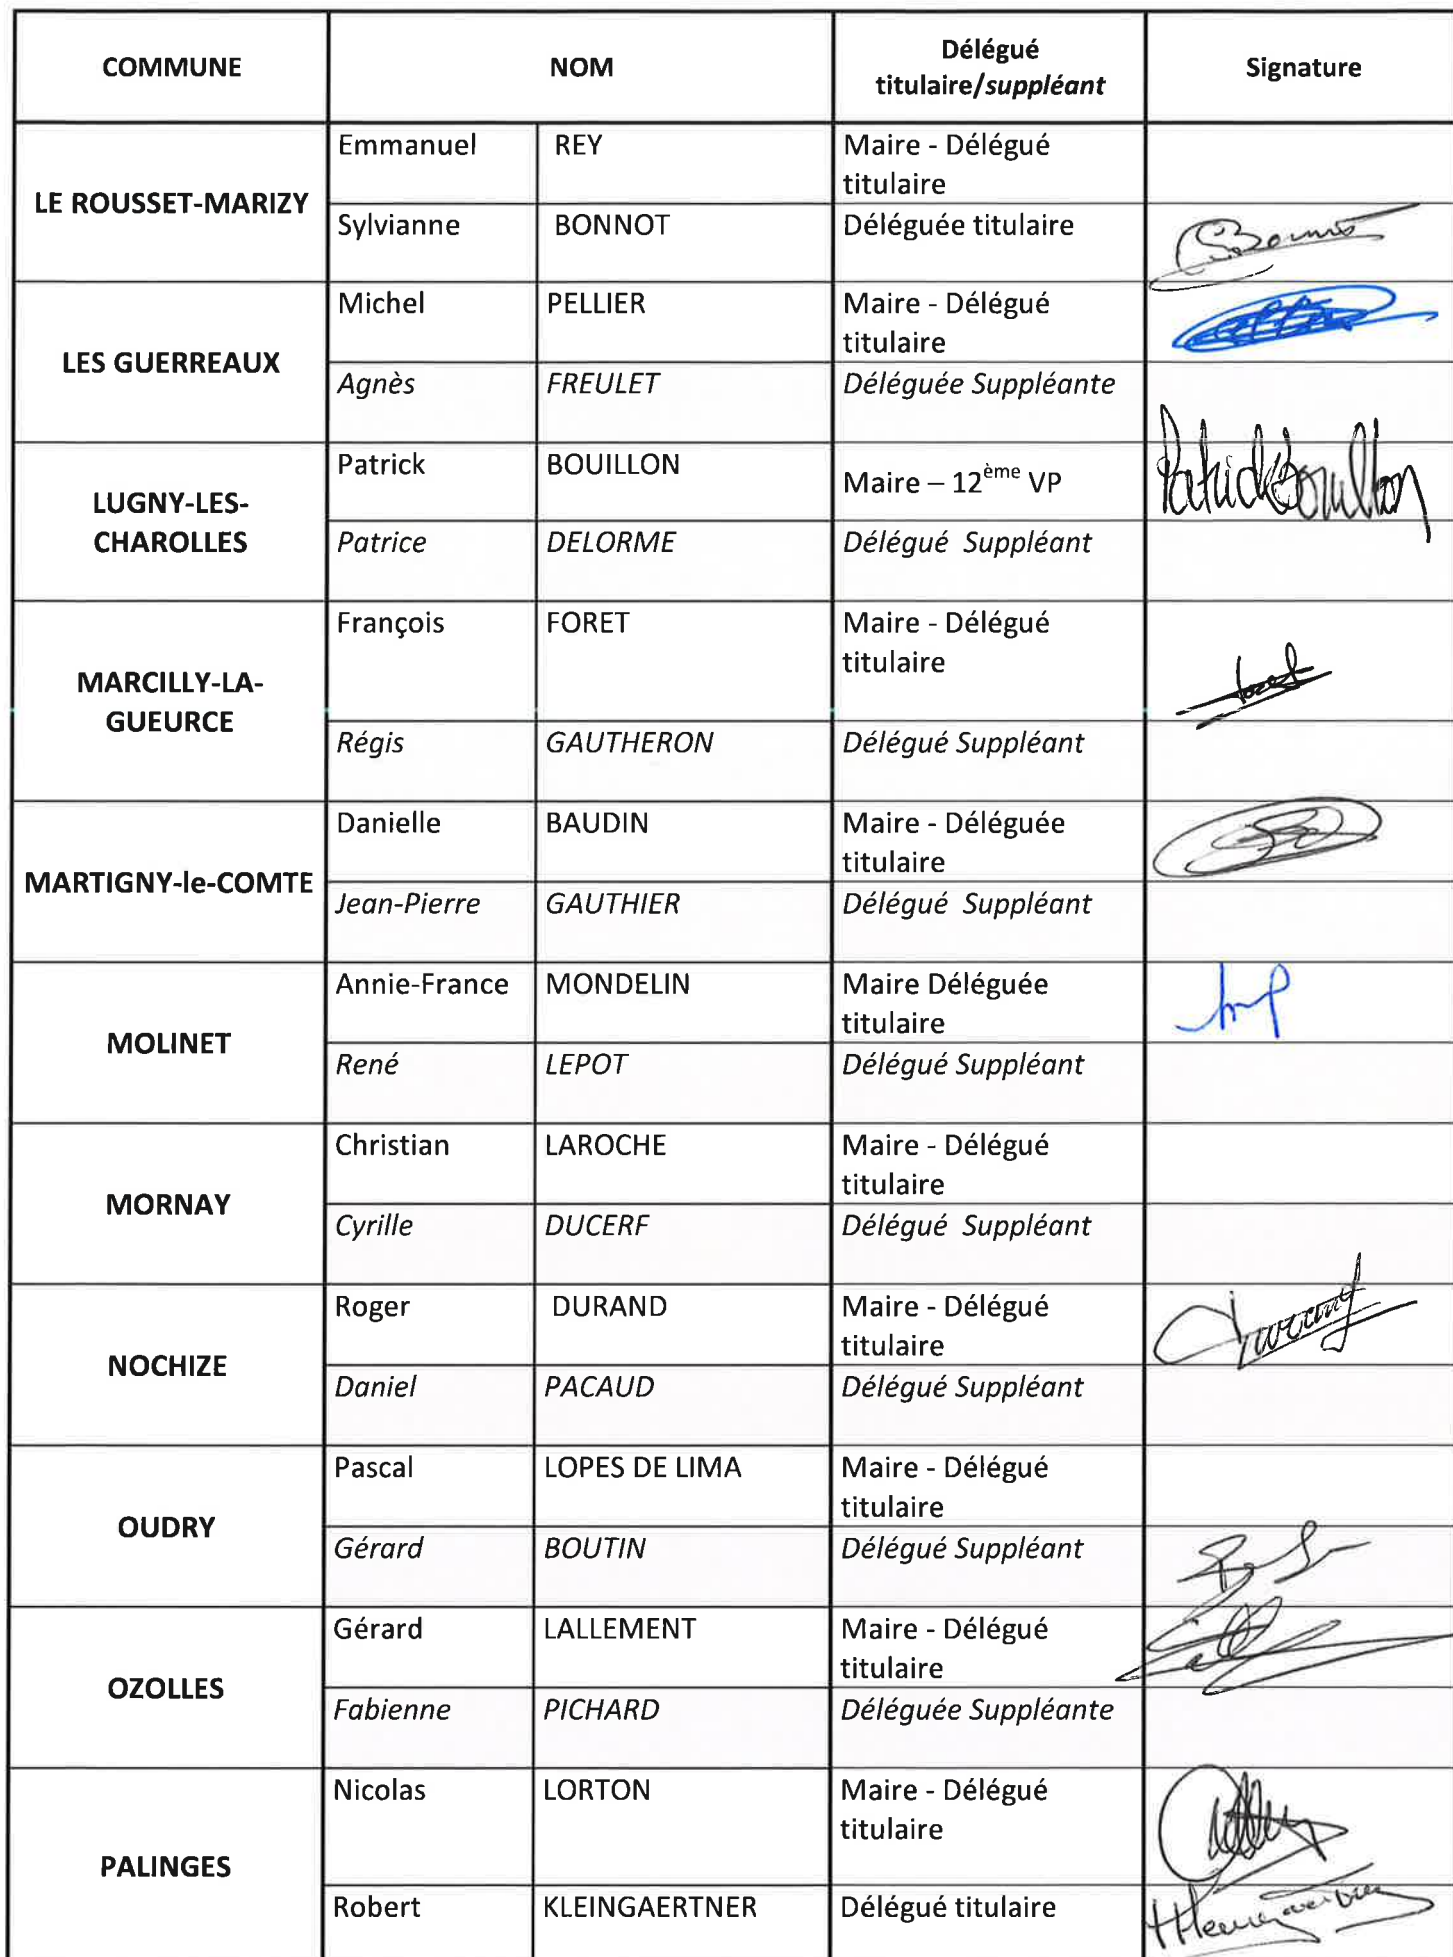 COMMUNE NOM Délégué titulaire/suppléant Signature
LE ROUSSET-MARIZY
Emmanuel REY Maire - Délégué
titulaire
Sylvianne BONNOT Déléguée titulaire
LES GUERREAUX
Michel PELLIER Maire - Délégué
titulaire
Agnès FREULET Déléguée Suppléante
LUGNY-LES-
CHAROLLES
Patrick BOUILLON Maire – 12ème VP Patrick Bouillon
Patrice DELORME Délégué Suppléant
MARCILLY-LA-
GUEURCE
François FORET Maire - Délégué
titulaire
Régis GAUTHERON Délégué Suppléant
MARTIGNY-le-COMTE
Danielle BAUDIN Maire - Déléguée
titulaire
Jean-Pierre GAUTHIER Délégué Suppléant
MOLINET
Annie-France MONDELIN Maire Déléguée
titulaire
René LEPOT Délégué Suppléant
MORNAY
Christian LAROCHE Maire - Délégué
titulaire
Cyrille DUCERF Délégué Suppléant
NOCHIZE
Roger DURAND Maire - Délégué
titulaire
Daniel PACAUD Délégué Suppléant
OUDRY
Pascal LOPES DE LIMA Maire - Délégué
titulaire
Gérard BOUTIN Délégué Suppléant
OZOLLES
Gérard LALLEMENT Maire - Délégué
titulaire
Fabienne PICHARD Déléguée Suppléante
PALINGES
Nicolas LORTON Maire - Délégué
titulaire
Robert KLEINGAERTNER Délégué titulaire